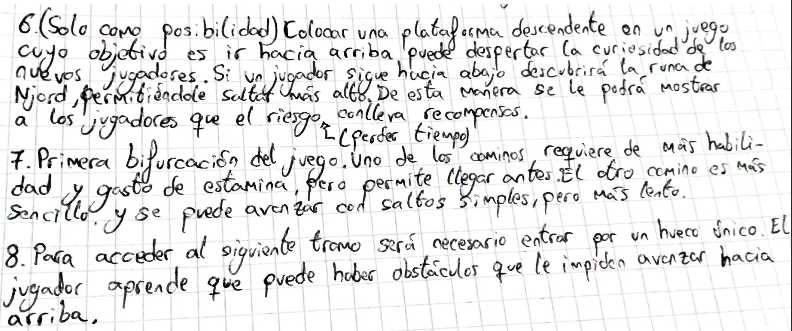 6. (Solo como posibilidad) Colocar una plataforma descendente en un juego
cuyo objetivo es ir hacia arriba puede despertar la curiosidad de los
nuevos jugadores. Si un jugador sigue hacia abajo descubrirá la runa de
Njord, permitiéndole saltar más alto. De esta manera se le podrá mostrar
a los jugadores que el riesgo conlleva recompensas.
(perder tiempo)
7. Primera bifurcación del juego. Uno de los caminos requiere de más habili-
dad y gasto de estamina, pero permite llegar antes. El otro camino es más
sencillo y se puede avanzar con saltos simples, pero más lento.
8. Para acceder al siguiente tramo será necesario entrar por un hueco único. El
jugador aprende que puede haber obstáculos que le impiden avanzar hacia
arriba.